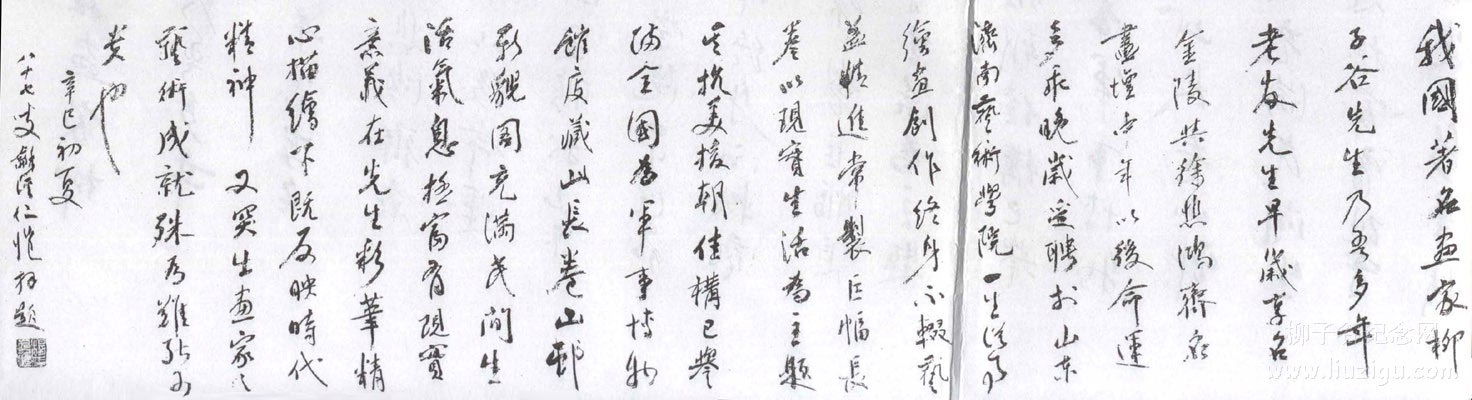 我國著名畫家柳
子谷先生乃吾多年
老友先生早歲享名
金陵與徐悲鴻齊名
畫壇中年以後命運
多乖晚歲受聘於山東
濟南藝術學院一生從事
繪畫創作終身不輟藝
益精進常製巨幅長
卷以現實生活為主題
其抗美援朝佳構已譽
滿全國為軍事博物
館度藏山長卷山邨
新貌圖充滿民間生
活氣息極富有現實
意義在先生彩筆精
心描繪下既反映時代
精神又突出畫家之
藝術成就殊為難能可
貴也
辛巳初夏
八十七叟 仁愷拜題
柳子谷纪念网
www.liuzigu.com